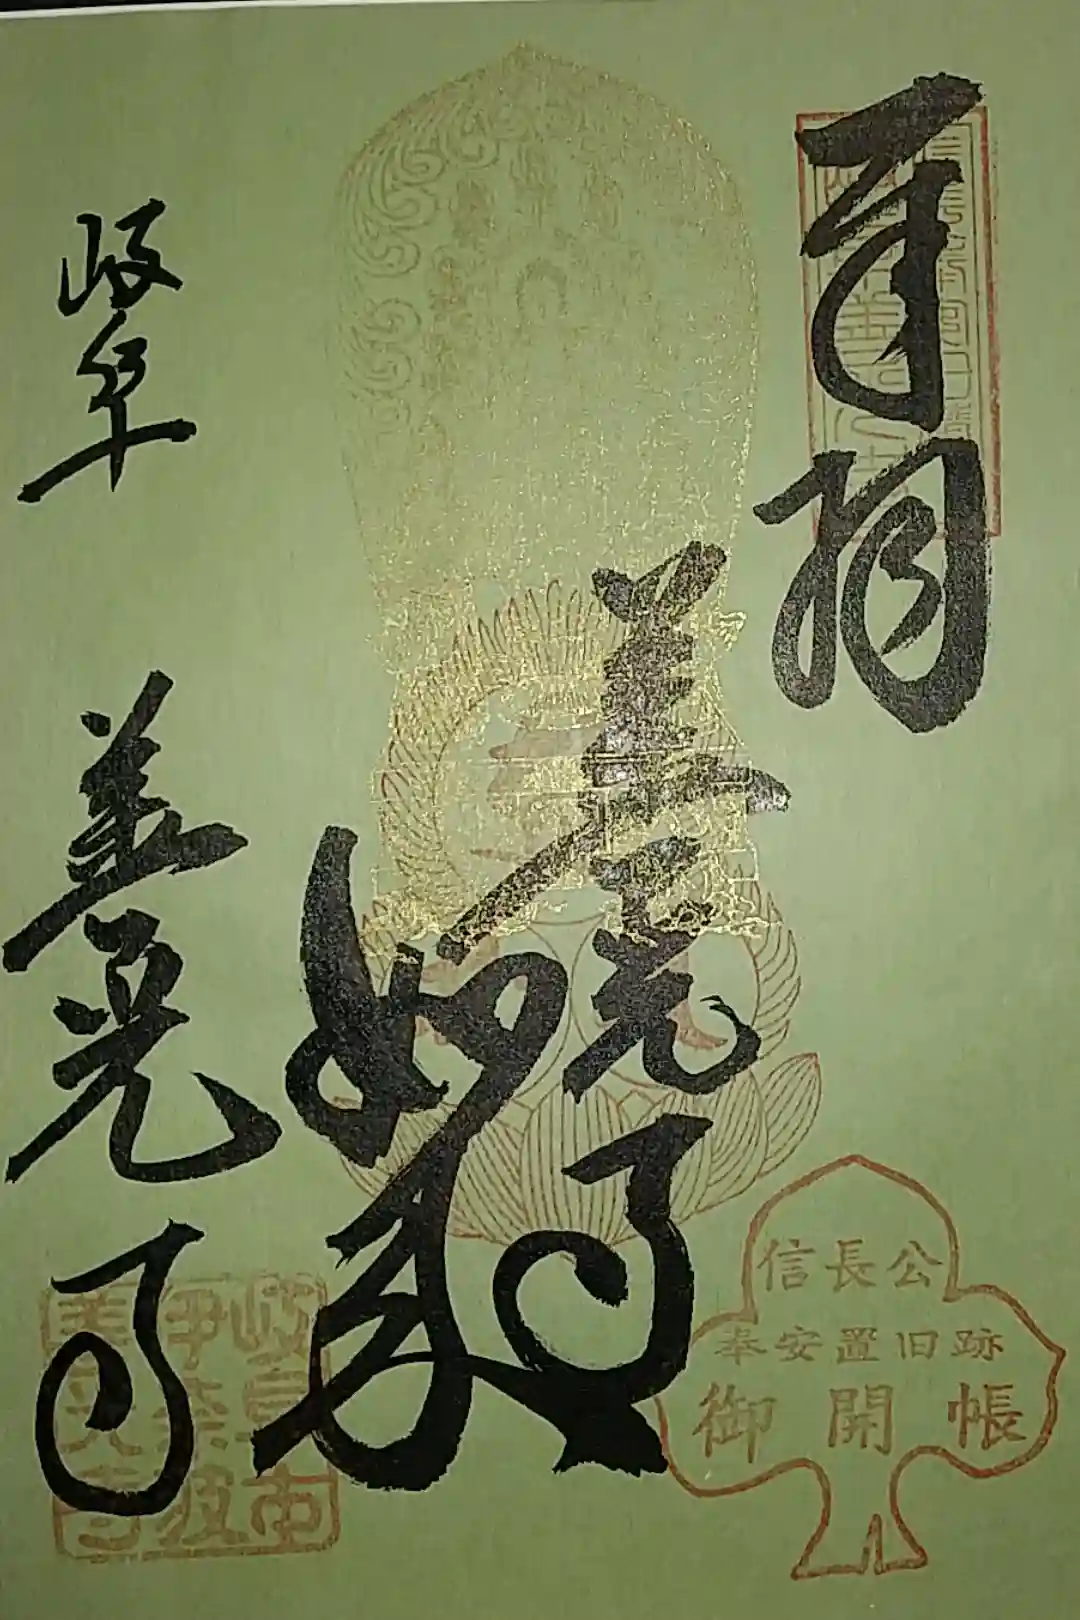 善光寺
如来
岐阜 善光寺
信長公
奉安置旧跡
御開帳
岐阜市
伊奈波
善光寺